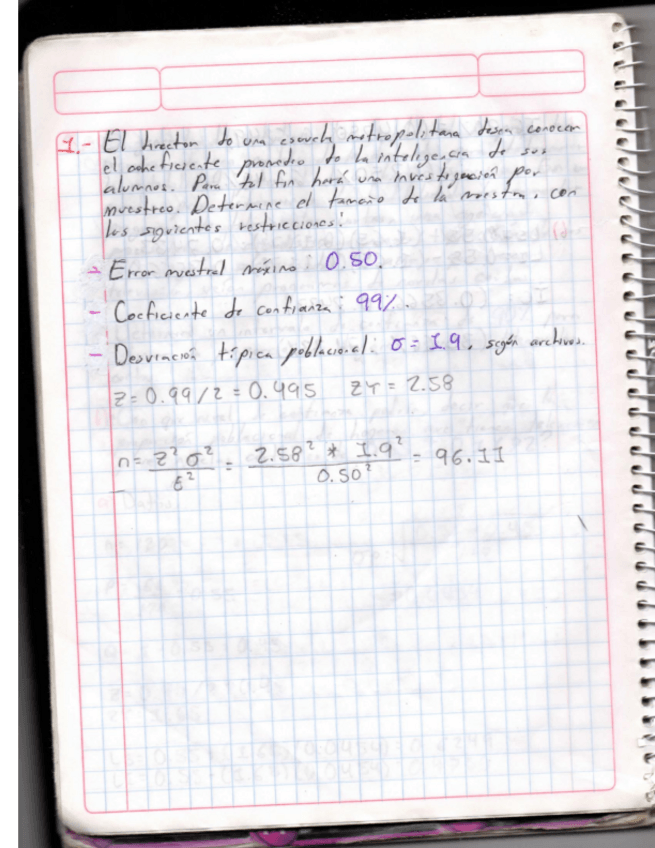 1.- El director de una escuela metropolitana desea conocer
el coheficiente promedio de la inteligencia de sus
alumnos. Para tal fin hará una investigación por
muestreo. Determine el tamaño de la muestra, con
las siguientes restricciones:
- Error muestral máximo: 0.50.
- Coeficiente de confianza: 99%.
- Desviación típica poblacional: σ = 1.9, según archivos.
Z = 0.99/2 = 0.495 ZT = 2.58
n = Z² σ² / E² = 2.58² * 1.9² / 0.50² = 96.11